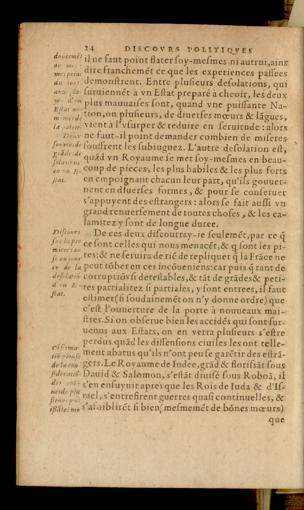 24 DISCOVRS POLITIQVES
il ne faut point flater soy-mesmes ni autrui, ains
dire franchemét ce que les experiences passees
demonstrent. Entre plusieurs desolations, qui
suruiennét à vn Estat preparé à cheoir, les deux
plus mauuaises sont, quand vne puissante Na-
tion, ou plusieurs, de diuerses mœurs & lãgues,
vient à l'vsurper & reduire en seruitude: alors
ne faut-il point demander combien de miseres
souffrent les subiuguez. L'autre desolation est,
quãd vn Royaume se met soy-mesmes en beau-
coup de pieces, les plus habiles & les plus forts
en empoignant chacun leur part, qu'ils gouuer-
nent en diuerses formes, & pour se conseruer
s'appuyent des estrangers: alors se fait aussi vn
grand renuersement de toutes choses, & les ca-
lamitez y sont de longue duree.
De ces deux discourray-ie seulemét, par ce q̃
ce sont celles qui nous menacét, & q̃ sont les pi-
res: & ne seruira de rié de repliquer q̃ la Frãce ne
peut tõber en ces incõueniens: car puis q̃ tant de
corruptiõs si detestables, & tãt de grãdes & peti-
tes partialitez si partiales, y sont entrees, il faut
estimer (si soudainemét on n'y donne ordre) que
c'est l'ouuerture de la porte à nouueaux mai-
stres. Si on obserue bien les accidés qui sont sur-
uenus aux Estats, on en verra plusieurs s'estre
perdus quãd les dissensions ciuiles les ont telle-
ment abatus qu'ils n'ont peu se garétir des estrã-
gers. Le Royaume de Iudee, grãd & florissãt sous
Dauid & Salomon, s'estãt diuisé sous Roboã, il
s'en ensuyuit apres que les Rois de Iuda & d'Is-
rael, s'entrefirent guerres quasi continuelles, &
s'afoiblirét si bien (mesmemét de bõnes mœurs)
que
Discours